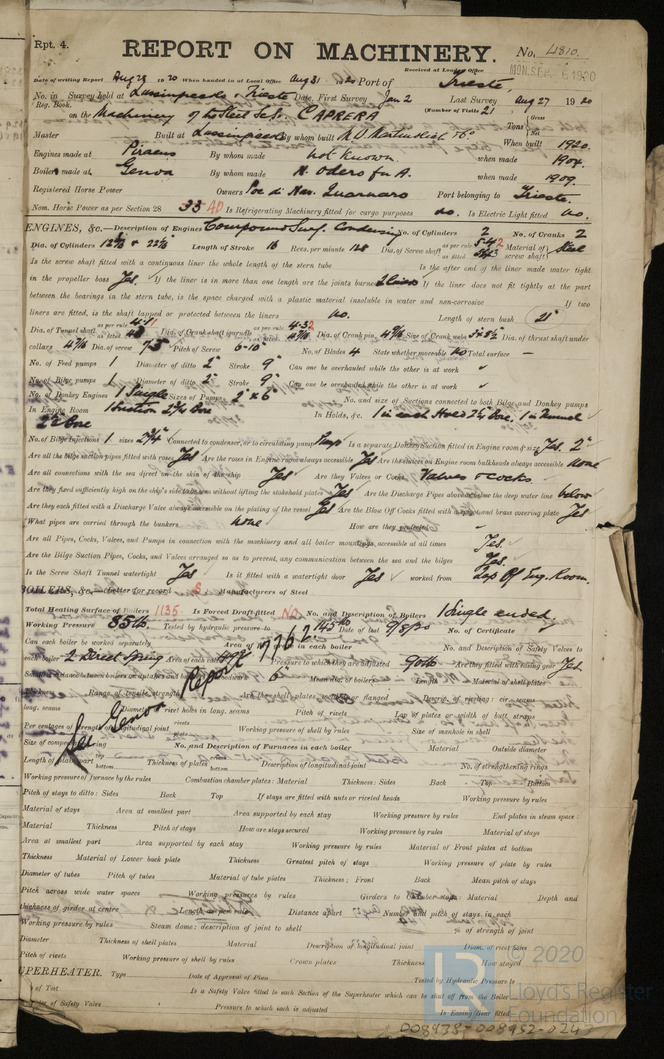 Rpt. 4.
REPORT ON MACHINERY.
No. 4810.
Received at London Office
MON. SEP. 6 1920
Date of writing Report Aug 29 1920 When handed in at Local Office Aug 31 1920 Port of Trieste,
No. in Survey held at Lussinpiccolo & Trieste Date, First Survey Jan 2 Last Survey Aug 27 1920
Reg. Book. (Number of Visits 21
on the Machinery of the Steel Sc. Sr. CAPRERA
Tons Gross Net
Master Built at Lussinpiccolo By whom built When built 1920.
Engines made at Piraeus By whom made not known. when made 1904.
Boilers made at Genoa By whom made N. Odero fu A. when made 1909.
Registered Horse Power Owners Soc di Nav. Quarnaro Port belonging to Trieste.
Nom. Horse Power as per Section 28 35 Is Refrigerating Machinery fitted for cargo purposes no. Is Electric Light fitted no.
ENGINES, &c.—Description of Engines Compound Surf. Condensing No. of Cylinders 2 No. of Cranks 2
Dia. of Cylinders Length of Stroke 16 Revs. per minute 128 Dia. of Screw shaft as per rule as fitted Material of screw shaft Steel
Is the screw shaft fitted with a continuous liner the whole length of the stern tube Is the after end of the liner made water tight
in the propeller boss Yes. If the liner is in more than one length are the joints burned If the liner does not fit tightly at the part
between the bearings in the stern tube, is the space charged with a plastic material insoluble in water and non-corrosive If two
liners are fitted, is the shaft lapped or protected between the liners no. Length of stern bush 21"
Dia. of Tunnel shaft as per rule 4.11 as fitted Dia. of Crank shaft journals as per rule 4.32 as fitted Dia. of Crank pin 4 7/16 Size of Crank webs Dia. of thrust shaft under
collars 4 7/16 Dia. of screw Pitch of Screw 6-10" No. of Blades 4 State whether moveable no Total surface -
No. of Feed pumps 1 Diameter of ditto 2" Stroke 9" Can one be overhauled while the other is at work
No. of Bilge pumps 1 Diameter of ditto 2" Stroke 9" Can one be overhauled while the other is at work
No. of Donkey Engines 1 Single Sizes of Pumps 2" x 6" No. and size of Suctions connected to both Bilge and Donkey pumps
In Engine Room 1 Suction 2 1/4 Bore In Holds, &c. 1 in each Hold 2 1/4 Bore. 1 in Tunnel
2 1/4 Bore
No. of Bilge Injections 1 sizes 2 3/4" Connected to condenser, or to circulating pump Pump Is a separate Donkey Suction fitted in Engine room & size Yes 2"
Are all the bilge suction pipes fitted with roses Yes Are the roses in Engine room always accessible Yes Are the sluices on Engine room bulkheads always accessible none
Are all connections with the sea direct on the skin of the ship Yes Are they Valves or Cocks Valves & cocks
Are they fixed sufficiently high on the ship's side to be seen without lifting the stokehold plates Yes Are the Discharge Pipes above or below the deep water line below
Are they each fitted with a Discharge Valve always accessible on the plating of the vessel Yes Are the Blow Off Cocks fitted with a spigot and brass covering plate Yes
What pipes are carried through the bunkers none How are they protected
Are all Pipes, Cocks, Valves, and Pumps in connection with the machinery and all boiler mountings accessible at all times Yes.
Are the Bilge Suction Pipes, Cocks, and Valves arranged so as to prevent any communication between the sea and the bilges Yes.
Is the Screw Shaft Tunnel watertight Yes Is it fitted with a watertight door Yes worked from Top Of Eng. Room.
BOILERS, &c.—(Letter for record S Manufacturers of Steel
Total Heating Surface of Boilers 1135. Is Forced Draft fitted NO. No. and Description of Boilers 1 Single ended
Working Pressure 85 lb. Tested by hydraulic pressure to 145 lb Date of test 9/8/20 No. of Certificate
Can each boiler be worked separately Area of in each boiler No. and Description of Safety Valves to
each boiler 2 Direct Spring Area of each valve Pressure to which they are adjusted 90 lb Are they fitted with easing gear Yes.
Smallest distance between boilers or uptakes and 6" Mean dia. of boilers Length Material of shell plates
Thickness Range of tensile strength Are the shell plates welded or flanged Descrip. of riveting: cir. seams
See Genoa Repo 7762.
long. seams Diameter of rivet holes in long. seams Pitch of rivets Lap of plates or width of butt straps
Per centages of strength of longitudinal joint rivets Working pressure of shell by rules Size of manhole in shell
Size of compensating No. and Description of Furnaces in each boiler Material Outside diameter
Length of plain part top bottom Thickness of plates crown bottom Description of longitudinal joint No. of strengthening rings
Working pressure of furnace by the rules Combustion chamber plates: Material Thickness: Sides Back Top Bottom
Pitch of stays to ditto: Sides Back Top If stays are fitted with nuts or riveted heads Working pressure by rules
Material of stays Area at smallest part Area supported by each stay Working pressure by rules End plates in steam space:
Material Thickness Pitch of stays How are stays secured Working pressure by rules Material of stays
Area at smallest part Area supported by each stay Working pressure by rules Material of Front plates at bottom
Thickness Material of Lower back plate Thickness Greatest pitch of stays Working pressure of plate by rules
Diameter of tubes Pitch of tubes Material of tube plates Thickness: Front Back Mean pitch of stays
Pitch across wide water spaces Working pressures by rules Girders to Chamber tops: Material Depth and
thickness of girder at centre Length as per rule Distance apart Number and pitch of stays in each
Working pressure by rules Steam dome: description of joint to shell % of strength of joint
Diameter Thickness of shell plates Material Description of longitudinal joint Diam. of rivet holes
Pitch of rivets Working pressure of shell by rules Crown plates Thickness How stayed
SUPERHEATER. Type Date of Approval of Plan Tested by Hydraulic Pressure to
of Test Is a Safety Valve fitted to each Section of the Superheater which can be shut off from the Boiler
of Safety Valve Pressure to which each is adjusted Is Easing Gear fitted
© 2020
Lloyd's Register
Foundation
008938-008952-0240